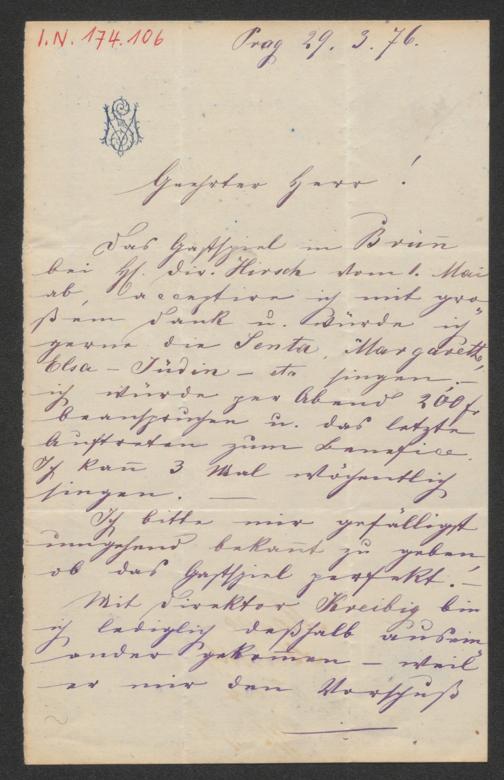 I.N. 174.106
Prag 29. 3. 76.
Geehrter Herr!
Das Gastspiel in Brün̄
bei H. Dir. Hirsch vom 1. Mai
ab, acceptire ich mit gro
ßem Dank u. würde ich
gerne die Senta, Margarethe,
Elsa - Jüdin - etc singen, -
ich würde per Abend 200 fr
beanspruchen u. das letzte
Auftreten zum Benefice.
Ich kan̄ 3 Mal wöchentlich
singen. —
Ich bitte mir gefälligst
umgehend bekan̄t zu geben,
ob das Gastspiel perfekt. -
Mit Direktor Kreibig bin
ich lediglich deßhalb ausein
ander gekomen - weil
er mir den Vorschuß